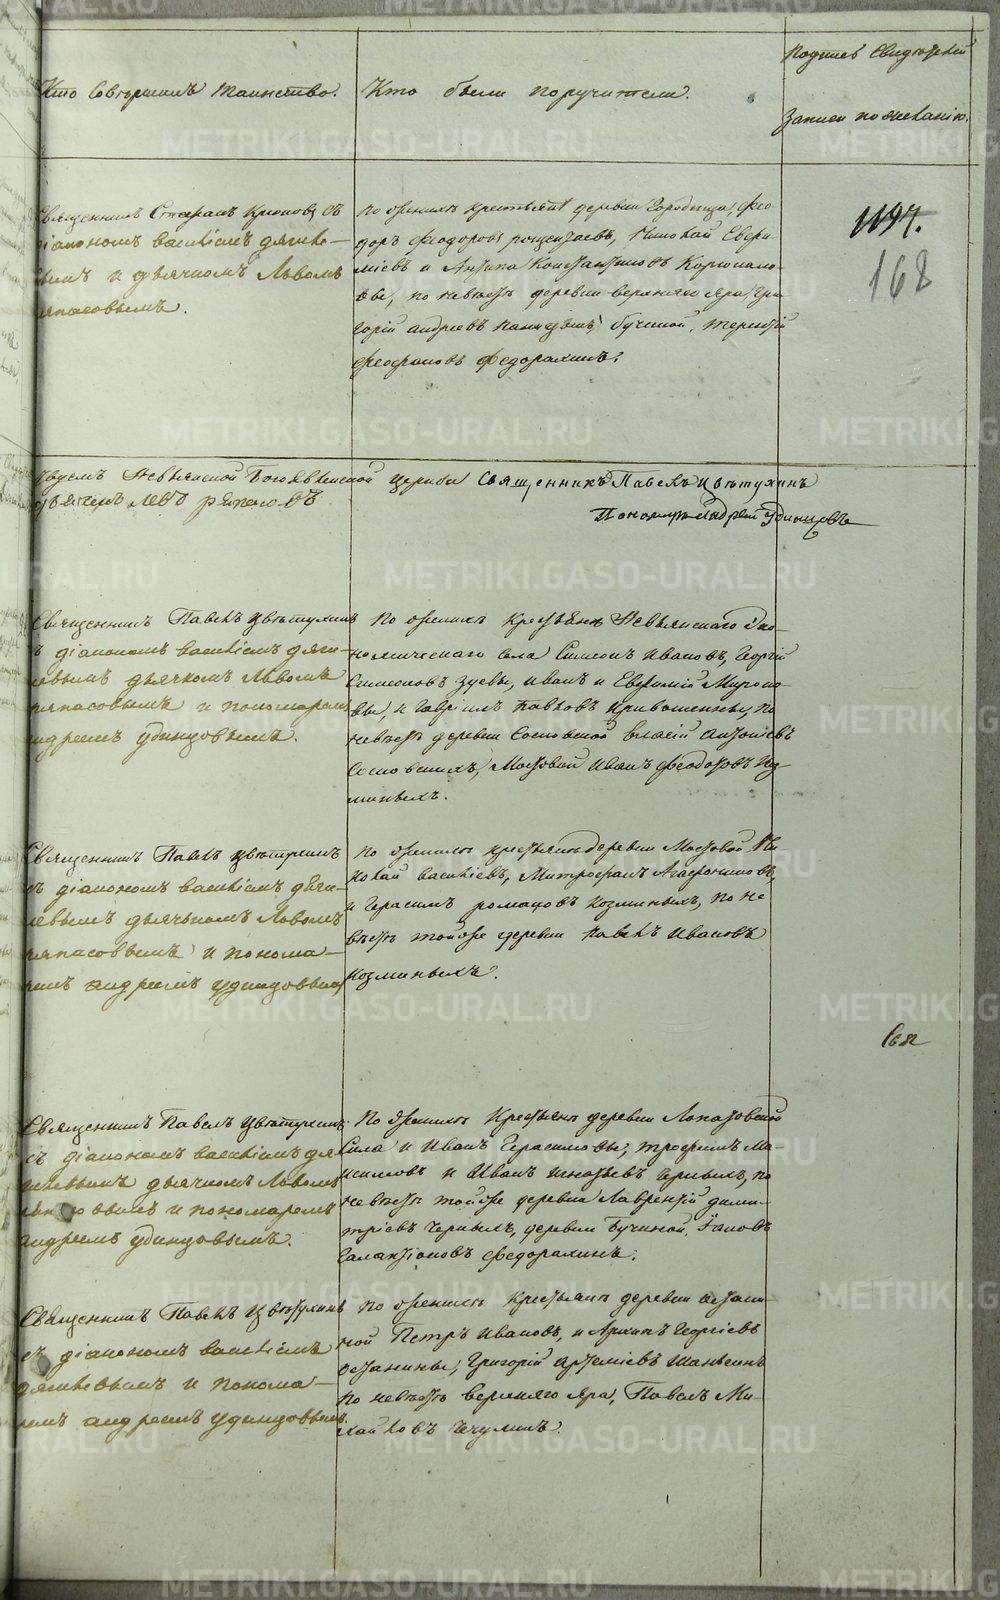 Кто совершилъ таинство.
Кто были поручители.
Подпись свидѣтелей
записи по желанію.
Священникъ Стефанъ съ
діакономъ Василіемъ Дягиле-
вымъ и дьячкомъ Львомъ
По женихѣ крестьяне деревни Ѳео-
доръ Ѳеодоровъ Николай Евѳи-
міевъ и Антипа Константиновъ
вы, по невѣстѣ деревни Верхняго Яра Гри-
горій Андреевъ Бучиной, Терентій
Ѳеофановъ Федорахинъ.
1197.
168
Невьянской Богоявленской церкви Священникъ Павелъ Цвѣтухинъ
Левъ
Пономарь Андрей Удинцовъ
Священникъ Павелъ Цвѣтухинъ
съ діакономъ Василіемъ Дяги-
левымъ дьячкомъ Львомъ
и пономаремъ
Андреемъ Удинцовымъ.
По женихѣ крестьяне Невьянскаго Эко-
номическаго села Симеонъ Ивановъ, Георгій
Симеоновъ Зуевы, Иванъ и Евѳимій Мироно-
вы, и Гавріилъ Павловъ Кривошеины, по
невѣстѣ деревни Сосновской Власій Антоніевъ
Сосновскихъ, Мостовой Иванъ Ѳеодоровъ Коз-
миныхъ.
Священникъ Павелъ Цвѣтухинъ
съ діакономъ Василіемъ Дяги-
левымъ дьячькомъ Львомъ
и понома-
ремъ Андреемъ Удинцовымъ
По женихѣ крестьяне деревни Мостовой Ни-
колай Василіевъ, Митрофанъ Агафониковъ,
и Герасимъ Романовъ Козминыхъ, по не-
вѣстѣ тойже деревни Павелъ Ивановъ
Козминыхъ.
Священникъ Павелъ Цвѣтухинъ
съ діакономъ Василіемъ Дя-
гилевымъ дьячкомъ Львомъ
и пономаремъ
Андреемъ Удинцовымъ.
По женихѣ крестьяне деревни Лопатовской
Сила и Иванъ Герасимовы, Трофимъ Ма-
ксимовъ и Иванъ Игнатьевъ Черныхъ, по
невѣстѣ тойже деревни Лаврентій Дими-
тріевъ Черныхъ, деревни Бучиной,
Галактіоновъ Федорахинъ.
Священникъ Павелъ Цвѣтухинъ
съ діакономъ Василіемъ
Дягилевымъ и понома-
ремъ Андреемъ Удинцовымъ.
По женихѣ крестьяне деревни Остани-
ной Петръ Ивановъ, и Архипъ Георгіевъ
Останины, Григорій Артеміевъ
по невѣстѣ Верхняго Яра, Павелъ Ми-
хайловъ Чечулинъ.
METRIKI.GASO-URAL.RU